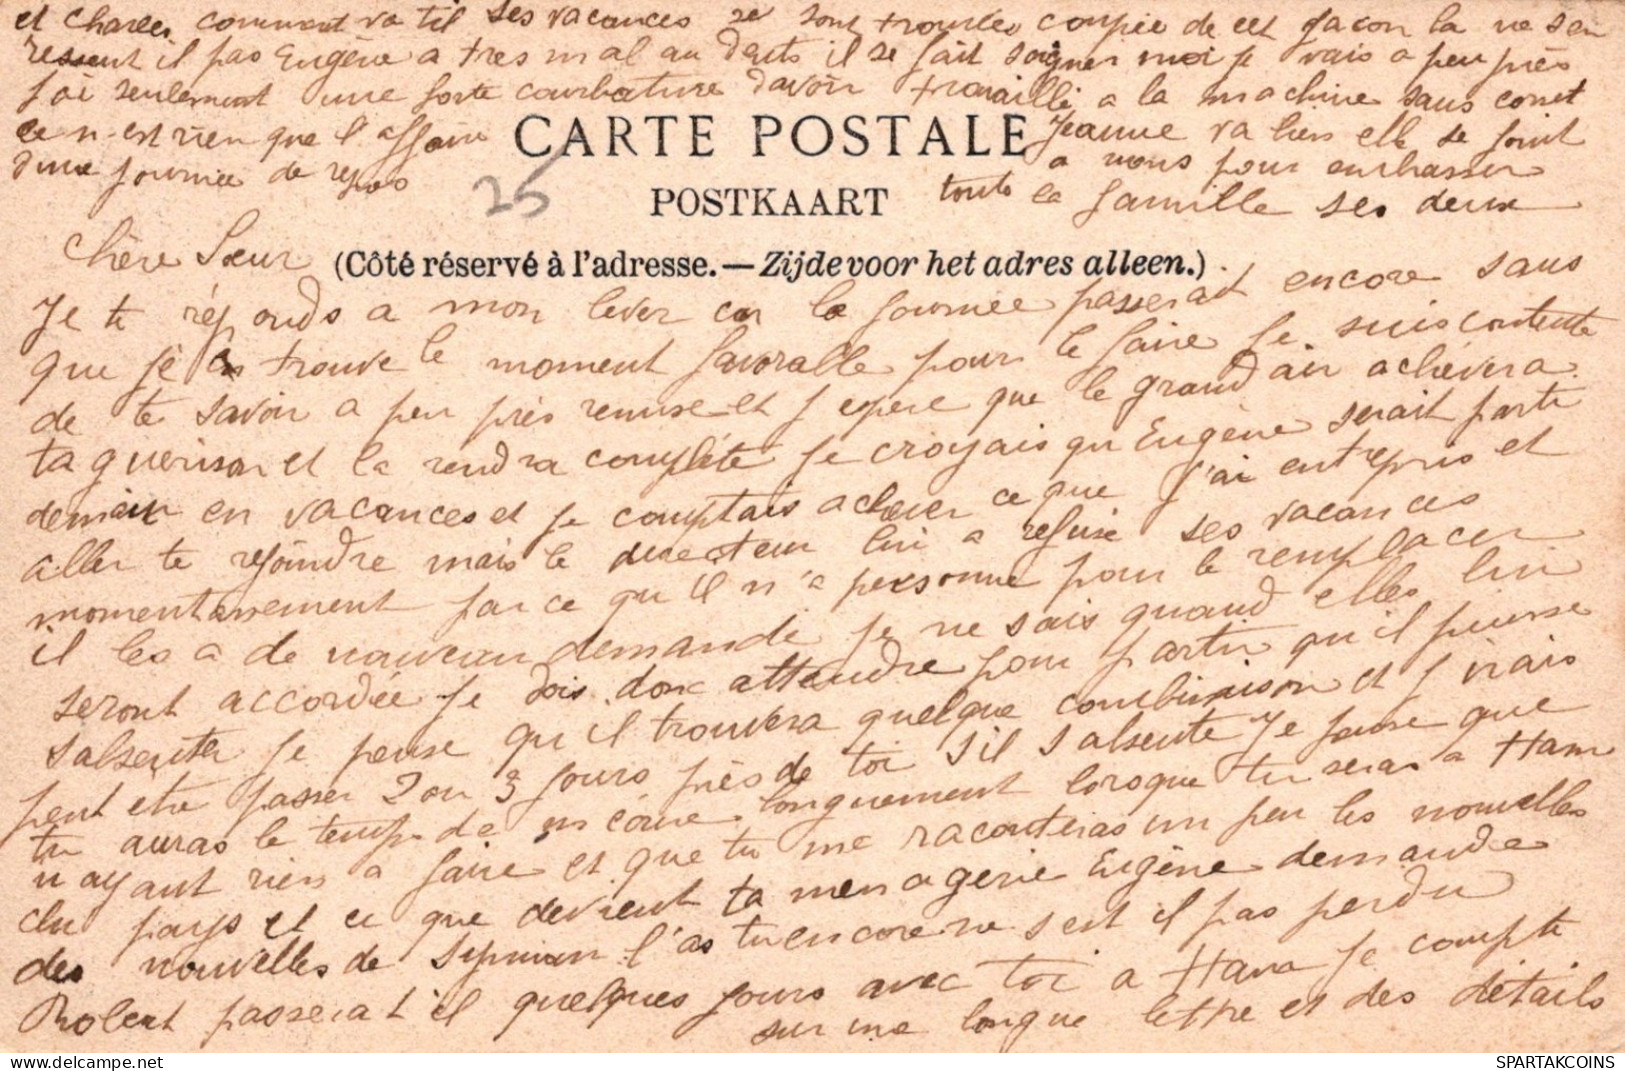 et Charles comment va til ses vacances se sont trouvées coupée de cet facon la ne sen
ressent il pas Eugène a tres mal au dents il se fait soigner moi je vais a peu près
j'ai seulement une forte courbature davoir travaillé a la machine sans corset
ce n-est rien que l'affaire
dune journée de repos
CARTE POSTALE
Jeanne va bien elle se joint
a nous pour embrasser
toute la famille ses deux
25
POSTKAART
Chère Sœur
(Côté réservé à l'adresse. — Zijde voor het adres alleen.)
Je te réponds a mon lever car la journée passerait encore sans
que je trouve le moment favorable pour le faire Je suis contente
de te savoir a peu près remise et j espère que le grand air achèvera
ta guérison et la rendra complète Je croyais qu Eugène serait parti
demain en vacances et je comptais achever ce que j'ai entrepris et
aller te rejoindre mais le directeur lui a refusé ses vacances
momentanement parce qu'il n'a personne pour le remplacer
il les a de nouveau demandé je ne sais quand elles lui
seront accordée je dois donc attendre pour partir qu il puisse
sabsenter je pense qu il trouvera quelque combinaison et j irais
peut etre passer 2 ou 3 jours près de toi s il s absente Je pense que
tu auras le temps de m écrire longuement lorsque tu seras a Ham
n ayant rien a faire et que tu me raconteras un peu les nouvelles
du pays et ce que devient ta menagerie Eugène demande
des nouvelles de l'as tu encore ne s est il pas perdu
Robert passera t'il quelques jours avec toi a Ham Je compte
sur une longue lettre et des détails
SPARTAKCOINS
www.delcampe.net